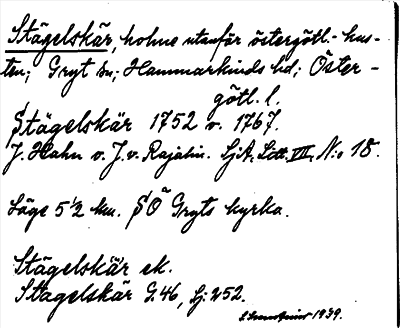 Stägelskär, holme utanför östergötl.-kus-
ten; Gryt sn; Hammarkinds hd; Öster-
götl. l.
Stägelskär 1752 o. 1767.
J. Hahn o. J. v. Rajalin. SjA, Litt. VII, N:o 18.
Läge 5 1/2 km. SO Gryts kyrka.
Stägelskär ek.
Stagelskär G.46, Sj: 252.
1939.